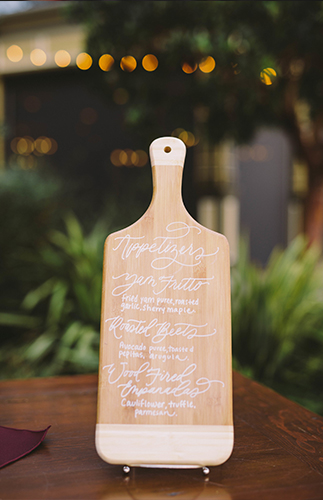 Appetizers
Yam Fritto
Fried yam puree, roasted
garlic, sherry maple
Roasted Beets
Avocado puree, toasted
pepitas, arugula
Wood Fired
Empanadas
Cauliflower, truffle,
parmesan